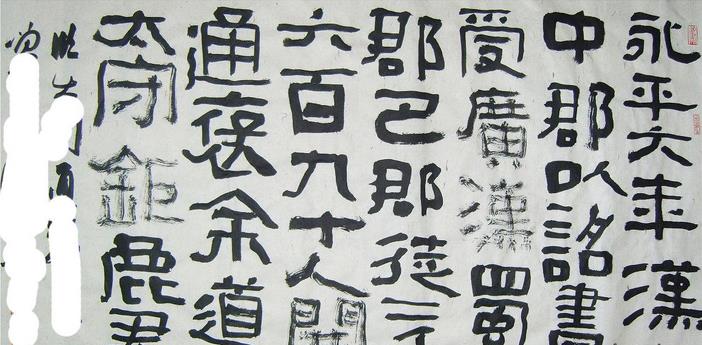 永平六年漢
中郡以詔書
受廣漢蜀
郡巴郡徒二千
六百九十人開
通褒余道
太守鉅鹿君
臨大